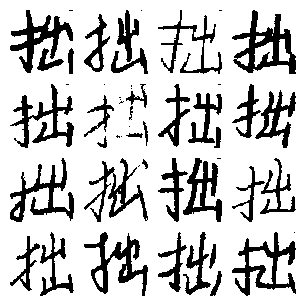 拙拙拙拙
拙拙拙拙
拙拙拙拙
拙拙拙拙